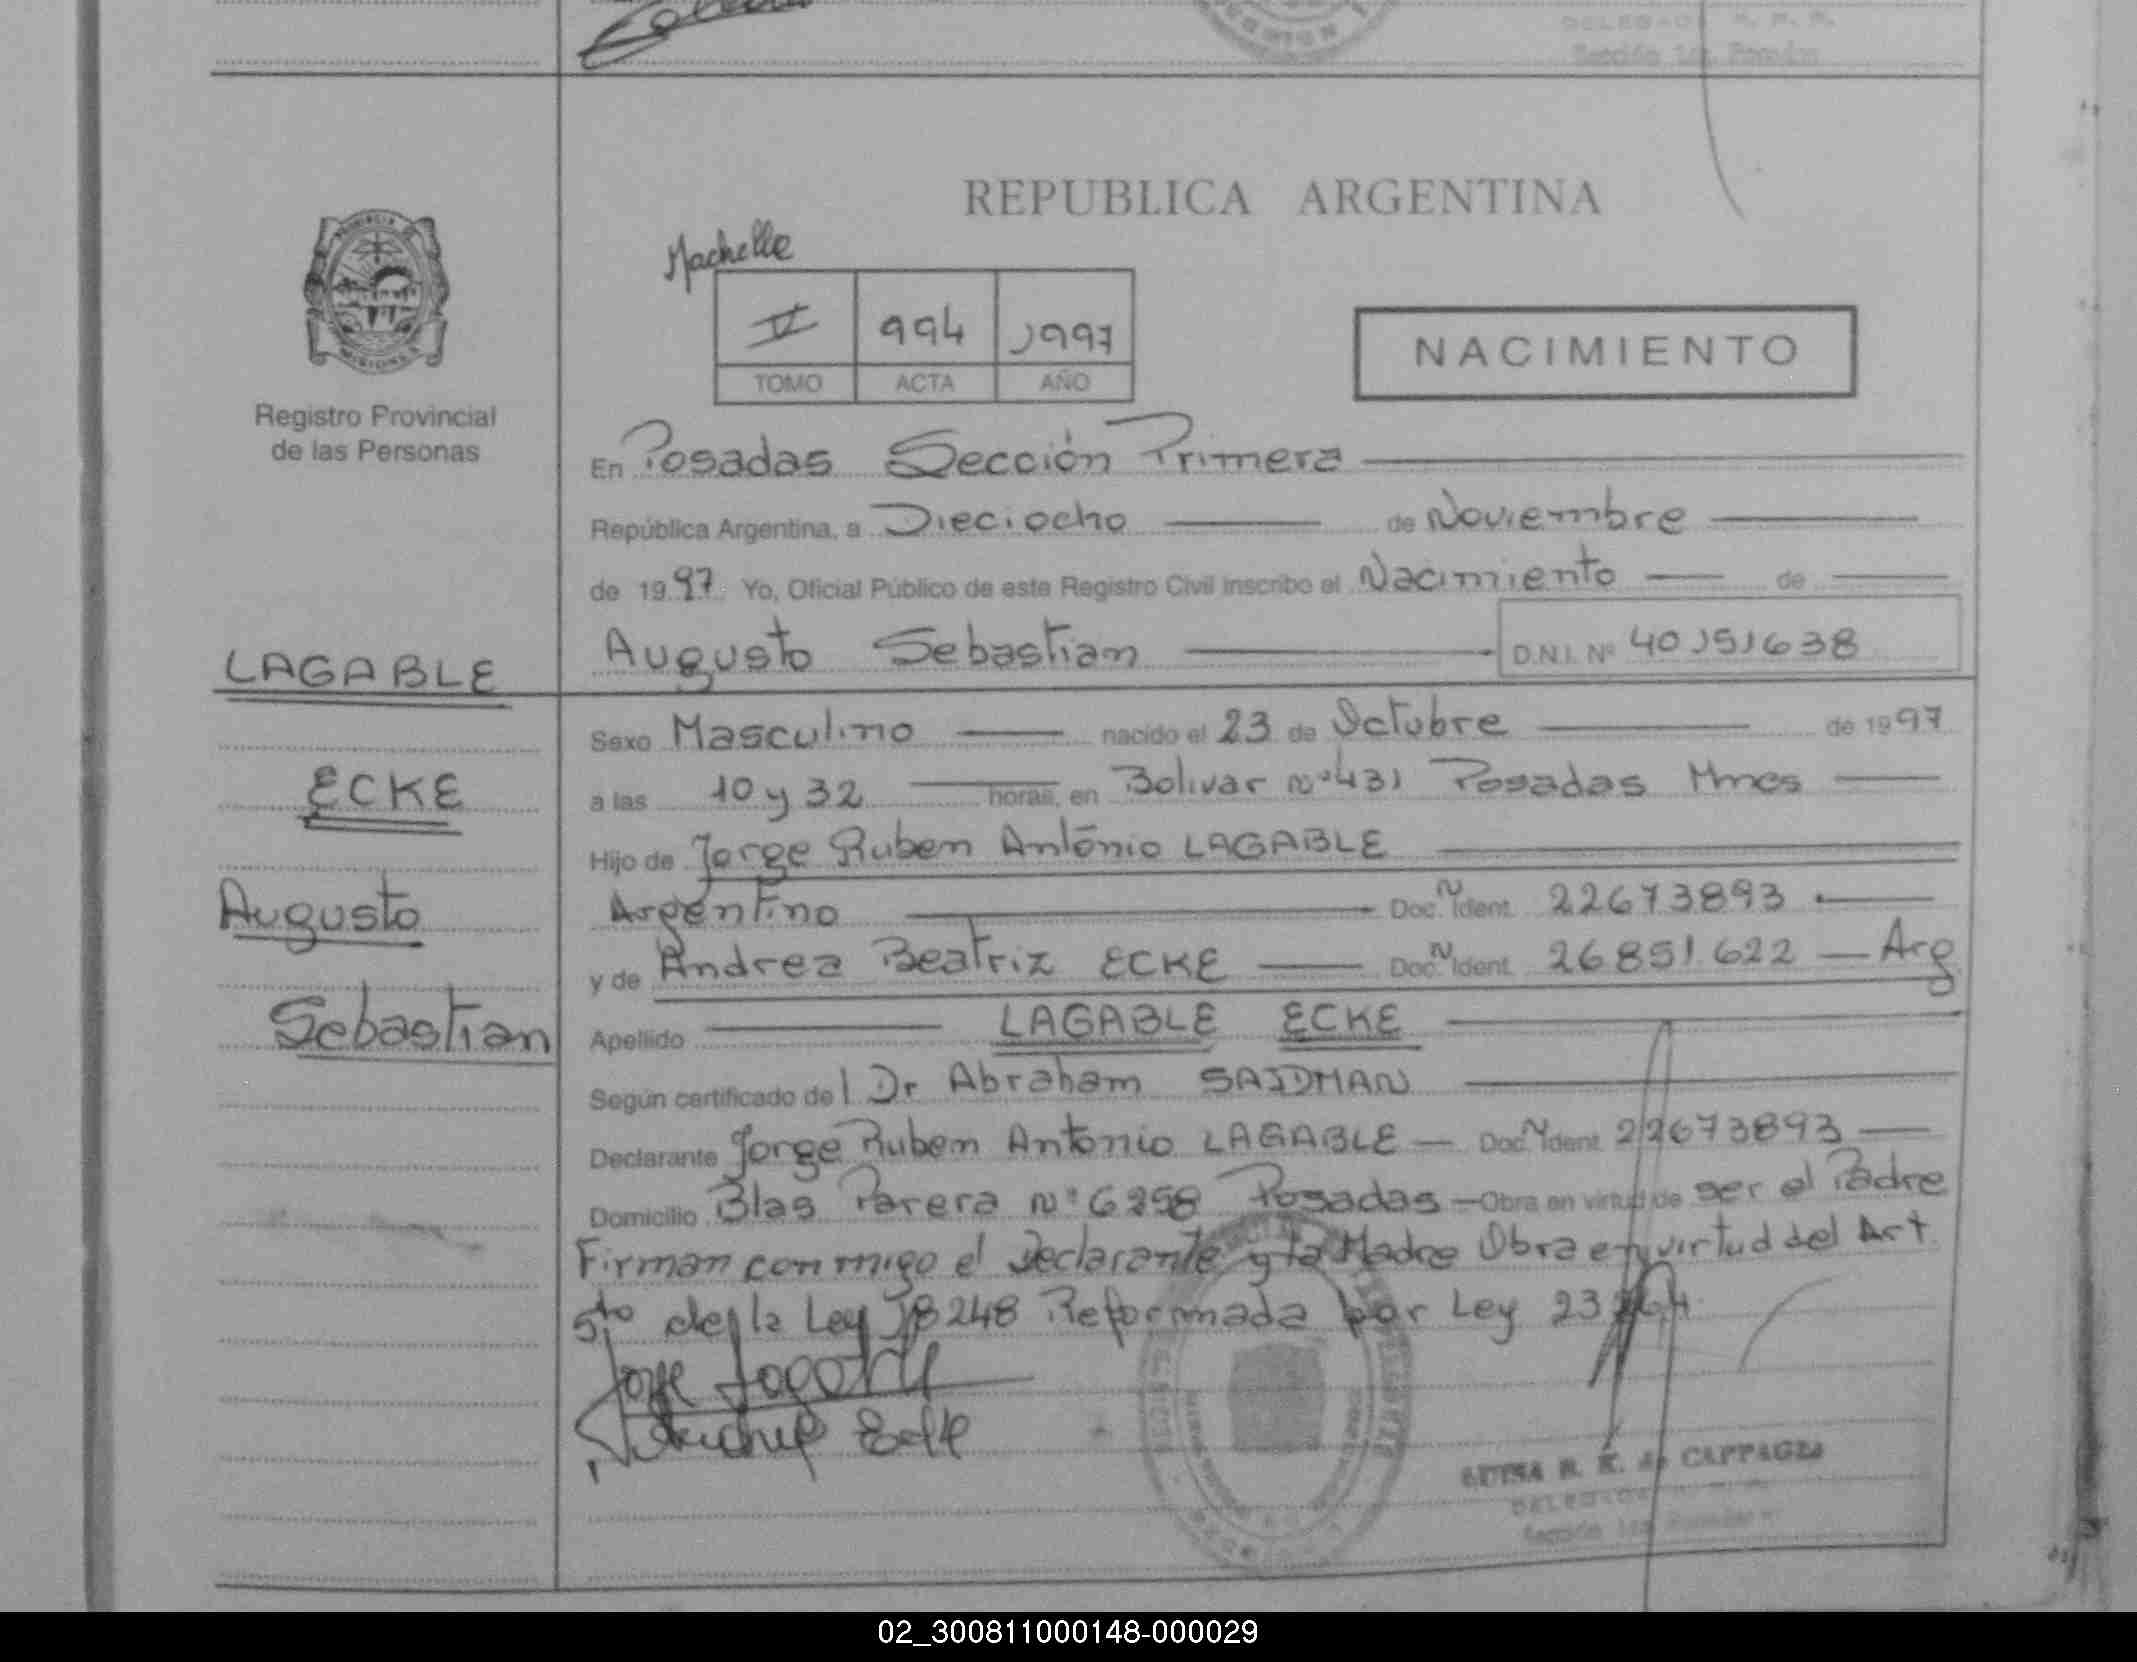 REPUBLICA ARGENTINA
Machelle
V 994 1997
TOMO ACTA AÑO
NACIMIENTO
Registro Provincial
de las Personas
En Posadas Sección Primera
República Argentina, a Dieciocho de Noviembre
de 1997 Yo, Oficial Público de este Registro Civil inscribo el Nacimiento de
Augusto Sebastian D.N.I. Nº 40151638
LAGABLE
ECKE
Augusto
Sebastian
Sexo Masculino nacido el 23 de Octubre de 1997
a las 10 y 32 horas, en Bolivar nº 431 Posadas Mnes
Hijo de Jorge Ruben António LAGABLE
Argentino Doc. N Ident. 22673893
y de Andrea Beatriz ECKE Doc. N Ident. 26851622 — Arg
Apellido LAGABLE ECKE
Según certificado del Dr Abraham SAIDMAN
Declarante Jorge Ruben Antonio LAGABLE — Doc. N Ident. 22673893
Domicilio Blas Parera Nº 6258 Posadas — Obra en virtud de ser el Padre
Firman conmigo el Declarante y la Madre Obra en virtud del Art
5to de la Ley 18248 Reformada por Ley 23264
CAPPAGLI
02_300811000148-000029